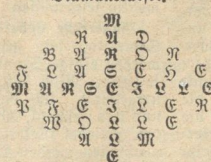 M
R A D
B A R O N
F L A S C H E
M A R S E I L L E
P F E I L E R
W O L L E
A L M
E